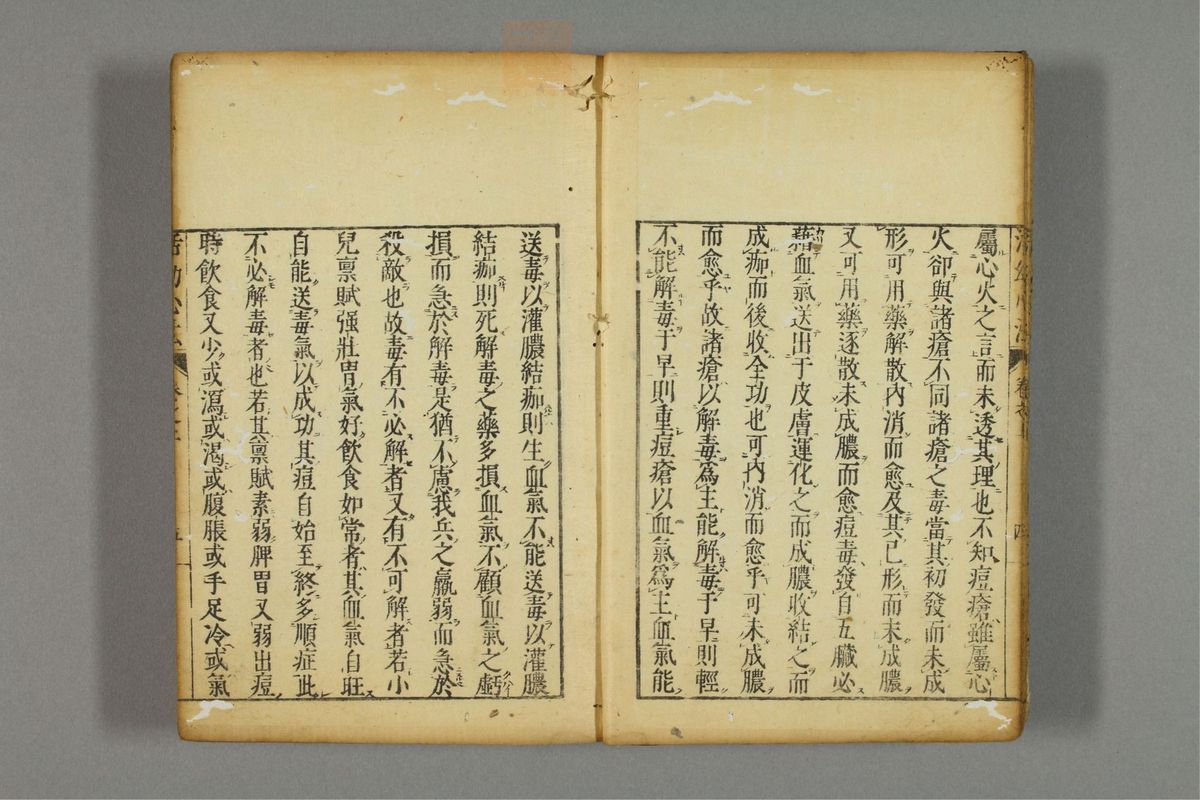 屬心火之言而未透其理也不知痘瘡雖屬心
火卻與諸瘡不同諸瘡之毒當其初發而未成
形可用藥解散内消而愈及其已形而未成膿
又可用藥逐散未成膿而愈痘毒發自五臟必
藉血氣送出于皮膚運化之而成膿收結之而
成痂而後收全功也可内消而愈乎可未成膿
而愈乎故諸瘡以解毒爲主能解毒于早則輕
不能解毒于早則重痘瘡以血氣爲主血氣能
送毒以灌膿結痂則生血氣不能送毒以灌膿
結痂則死解毒之藥多損血氣不顧血氣之虧
損而急於解毒是猶不慮我兵之羸弱而急於
殺敵也故毒有不必解者又有不可解者若小
兒禀賦强壯胃氣好飲食如常者其血氣自旺
自能送毒氣以成功其痘自始至終多順症此
不必解毒者也若其禀賦素弱脾胃又弱出痘
時飲食又少或瀉或渴或腹脹或手足冷或氣